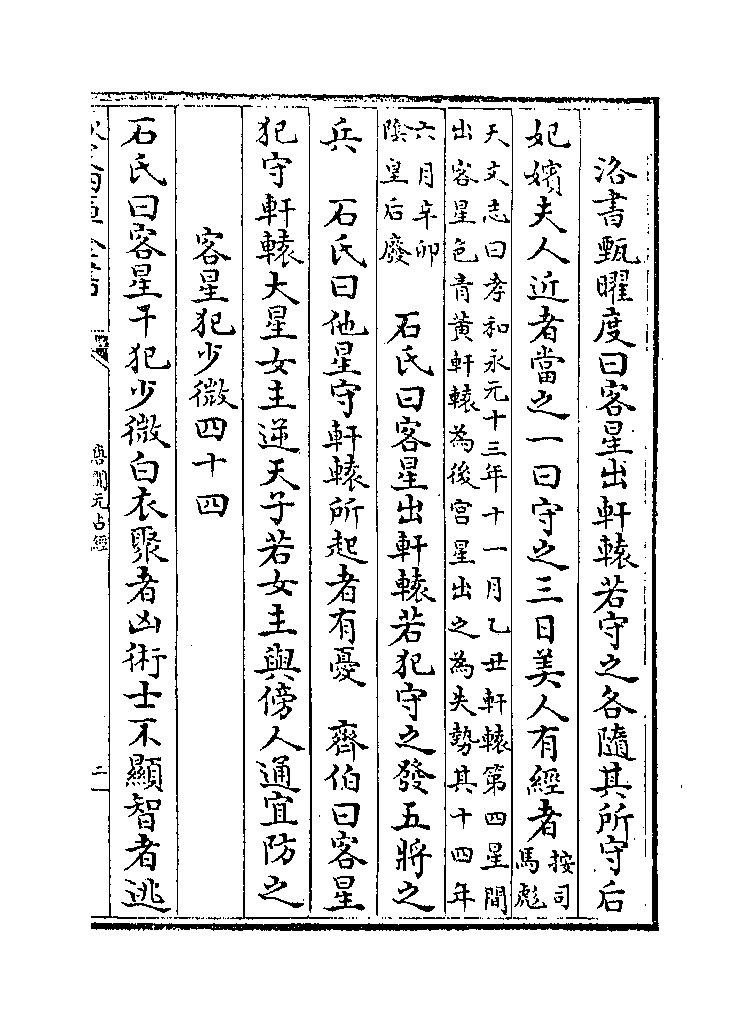 洛書甄曜度曰客星出軒轅若守之各隨其所守后
妃嬪夫人近者當之一曰守之三日美人有經者按司
馬彪
天文志曰孝和永元十三年十一月乙丑軒轅第四星間
出客星色青黄軒轅為後宮星出之為失勢其十四年
六月辛卯
隂皇后廢　石氏曰客星出軒轅若犯守之發五將之
兵　石氏曰他星守軒轅所起者有憂　齊伯曰客星
犯守軒轅大星女主逆天子若女主與傍人通宜防之
客星犯少微四十四
石氏曰客星干犯少微白衣聚者凶術士不顯智者逃
欽定四庫全書
唐開元占經
二